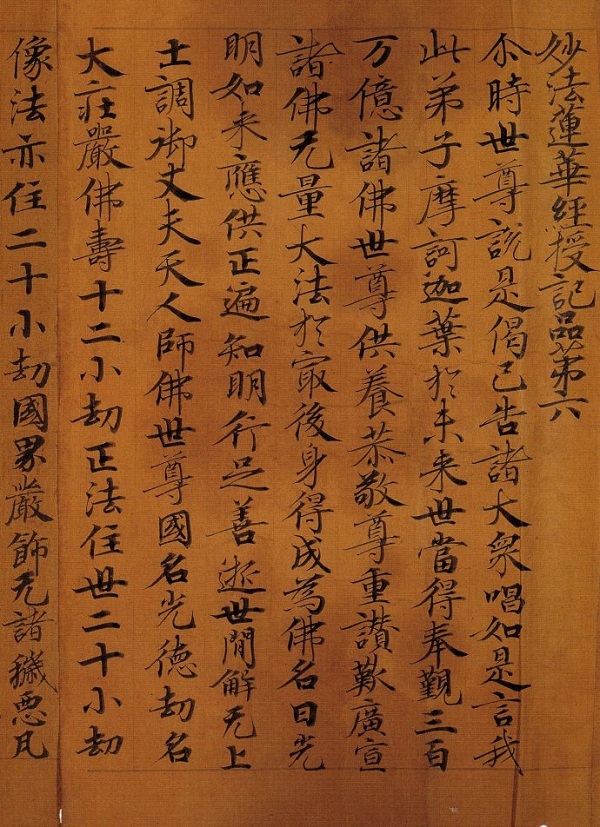 妙法蓮華經授記品第六
尒時世尊說是偈已告諸大衆唱如是言我
此弟子摩訶迦葉於未来世當得奉覲三百
万億諸佛世尊供養恭敬尊重讃歎廣宣
諸佛无量大法於㝡後身得成為佛名曰光
明如来應供正遍知明行足善逝世間解无上
士調御丈夫天人師佛世尊國名光徳劫名
大莊嚴佛壽十二小劫正法住世二十小劫
像法亦住二十小劫國界嚴飾无諸穢惡凡